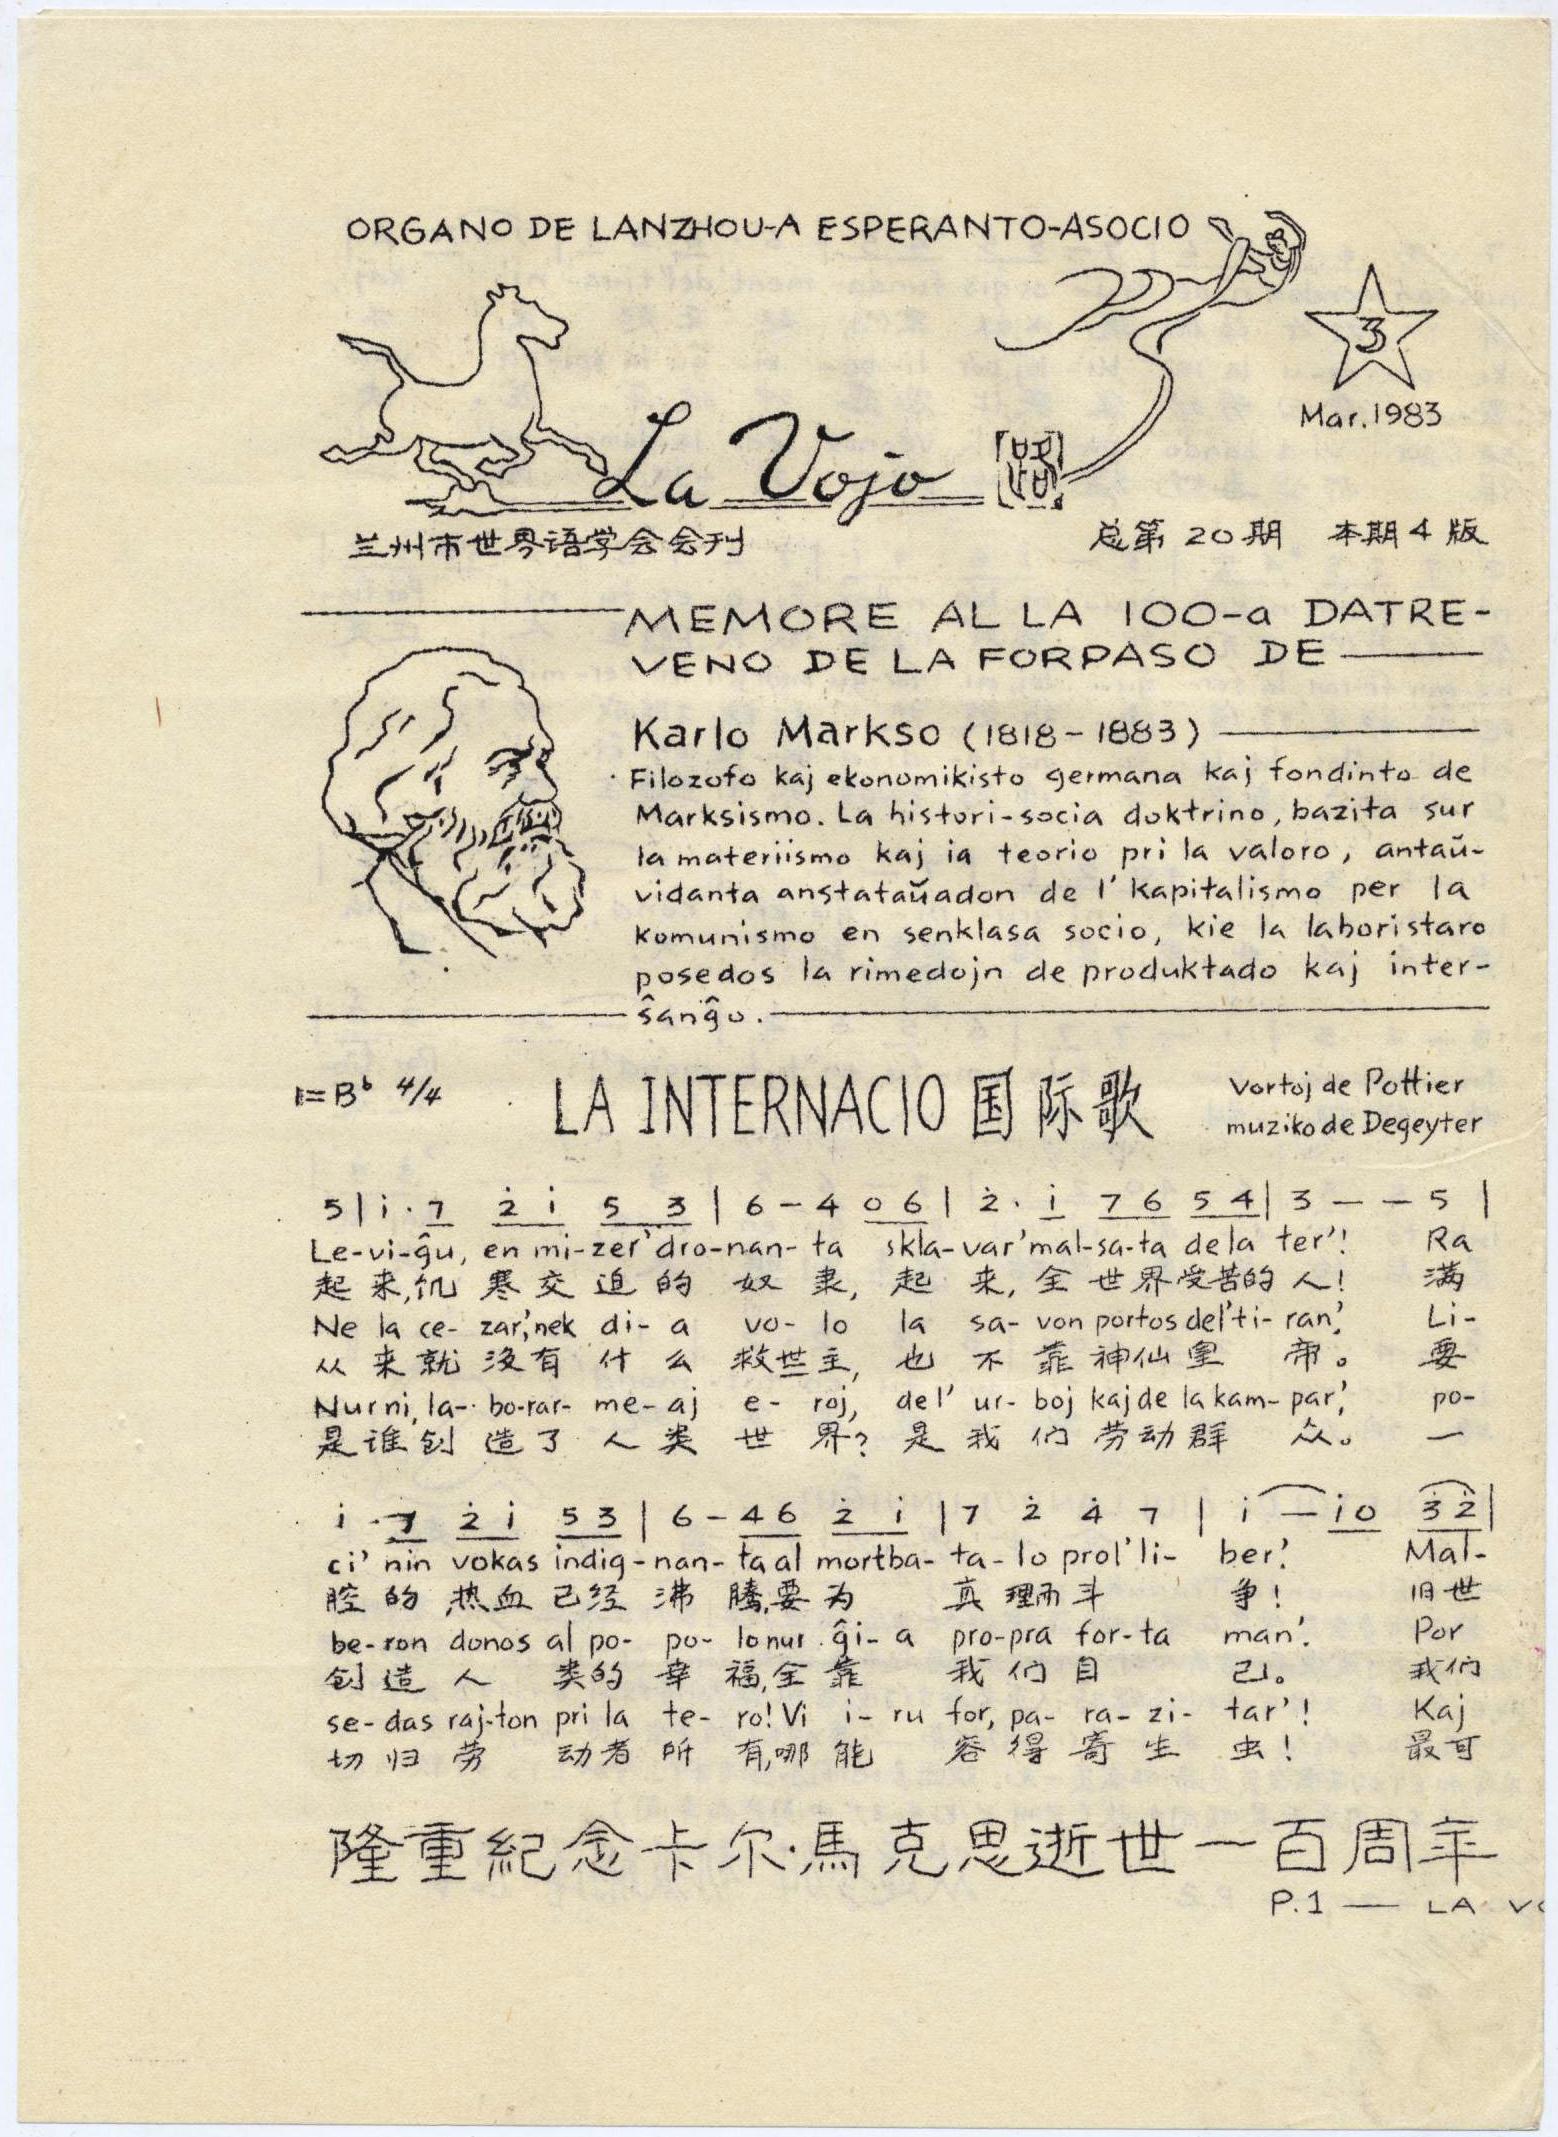 ORGANO DE LANZHOU-A ESPERANTO-ASOCIO
3
Mar.1983
La Vojo 路
兰州市世界语学会会刊
总第20期 本期4版
MEMORE AL LA 100-a DATRE-
VENO DE LA FORPASO DE
Karlo Markso (1818-1883)
Filozofo kaj ekonomikisto germana kaj fondinto de
Marksismo. La histori-socia doktrino, bazita sur
la materiismo kaj ia teorio pri la valoro, antaŭ-
vidanta anstataŭadon de l' kapitalismo per la
komunismo en senklasa socio, kie la laboristaro
posedos la rimedojn de produktado kaj inter-
ŝanĝo.
1=B♭ 4/4
LA INTERNACIO 国际歌
vortoj de Pottier
muziko de Degeyter
5 | i̇ · 7 2̇ i̇ 5 3 | 6 – 4 0 6 | 2̇ · i̇ 7 6 5 4 | 3 – – 5 |
Le-vi-ĝu, en mi-zer' dro-nan-ta skla-var' mal-sa-ta de la ter'! Ra
起来,饥寒交迫的奴隶,起来,全世界受苦的人! 满
Ne la ce-zar', nek di-a vo-lo la sa-von portos del' ti-ran'. Li-
从来就没有什么救世主,也不靠神仙皇帝。 要
Nur ni, la-bo-rar-me-aj e-roj, de l' ur-boj kaj de la kam-par', po-
是谁创造了人类世界?是我们劳动群众。 一
i̇ · 7 2̇ i̇ 5 3 | 6 – 4 6 2̇ i̇ | 7 2̇ 4̇ 7 | i̇ – i̇ 0 3̇ 2̇ |
ci' nin vokas indig-nan-ta al mortba-ta-lo prol' li-ber'. Mal-
腔的热血已经沸腾,要为真理而斗争! 旧世
be-ron donos al po-po-lo nur ĝi-a pro-pra for-ta man'. Por
创造人类的幸福,全靠我们自己。 我们
se-das raj-ton pri la te-ro! Vi i-ru for, pa-ra-zi-tar'! Kaj
切归劳动者所有,哪能容得寄生虫! 最可
隆重紀念卡尔·馬克思逝世一百周年
P.1 — LA